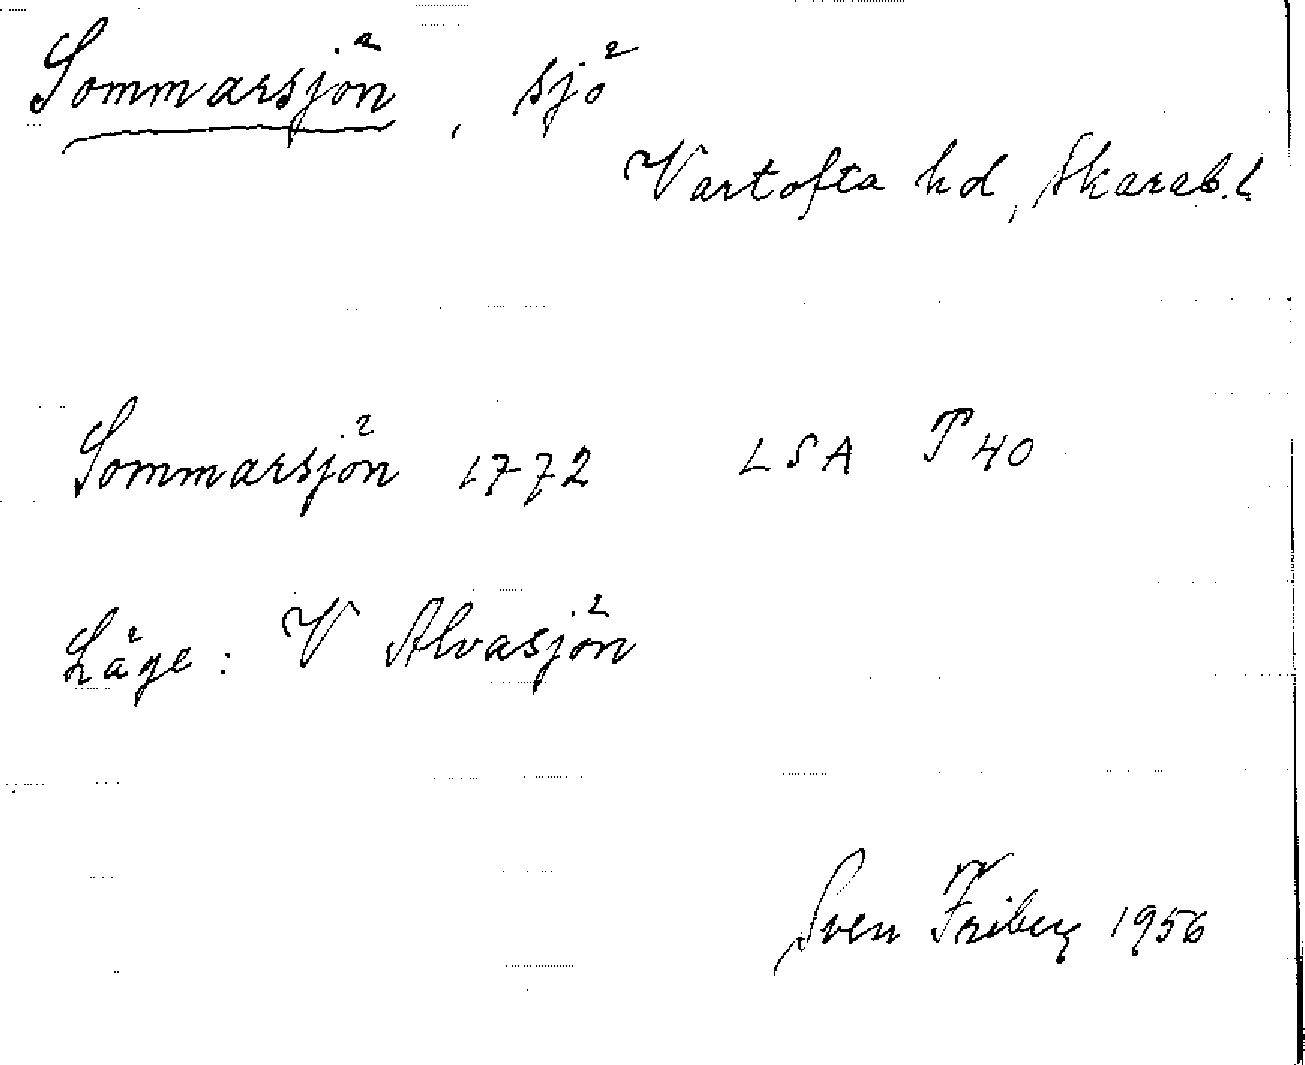 Sommarsjön, sjö
Vartofta hd, Skarab. l
Sommarsjön 1772 LSA P 40
Läge: V Alvasjön
Sven Friberg 1956